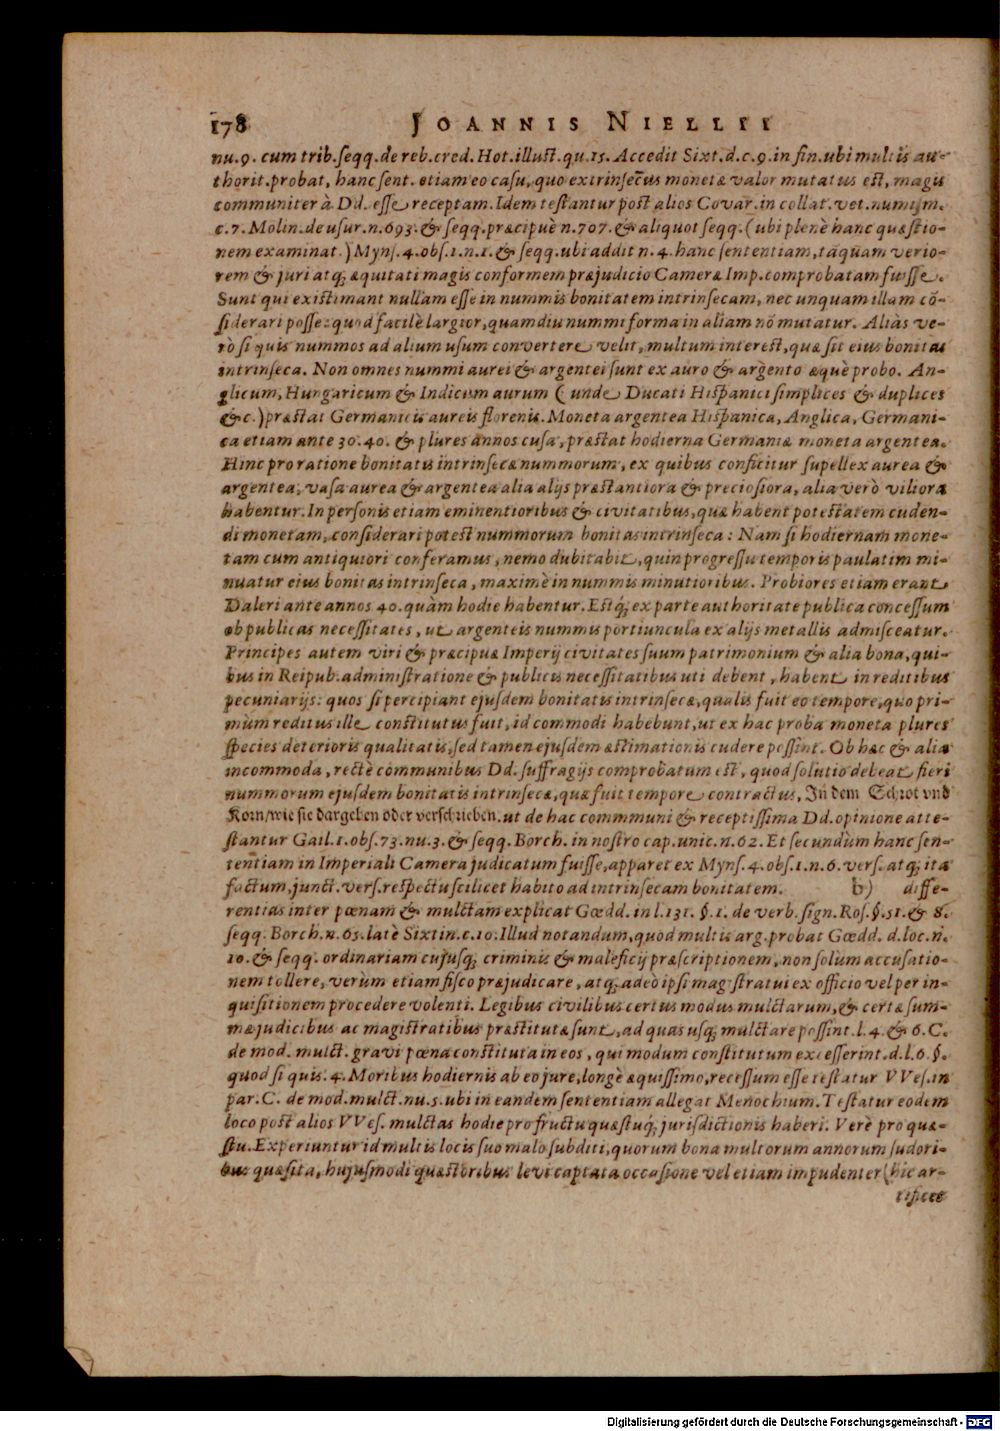 178 JOANNIS NIELLII
nu.9. cum trib.seqq.de reb.cred. Hot.illust.qu.15. Accedit Sixt.d.c.9.in fin.ubi multis au-
thorit.probat, hanc sent. etiam eo casu, quo extrinsecus monetæ valor mutatus est, magis
communiter à Dd. esse receptam. Idem testantur post alios Covar.in collat. vet. numism.
c.7. Molin.de usur.n.693.& seqq.præcipuè n.707.& aliquot seqq.(ubi plenè hanc quæstio-
nem examinat.) Myns.4.obs.1.n.1.& seqq.ubi addit n.4.hanc sententiam, tāquam verio-
rem & juri atq; æquitati magis conformem præjudicio Cameræ Imp.comprobatam fuisse.
Sunt qui existimant nullam esse in nummis bonitatem intrinsecam, nec unquam illam cō-
siderari posse: quod facilè largior, quamdiu nummi forma in aliam nō mutatur. Aliàs ve-
rò si quis nummos ad alium usum convertere velit, multum interest, quæ sit eius bonitas
intrinseca. Non omnes nummi aurei & argentei sunt ex auro & argento æquè probo. An-
glicum, Hungaricum & Indicum aurum (unde Ducati Hispanici simplices & duplices
&c.) præstat Germanicis aureis florenis. Moneta argentea Hispanica, Anglica, Germani-
ca etiam ante 30.40. & plures annos cusa, præstat hodierna Germaniæ moneta argentea.
Hinc pro ratione bonitatis intrinsecæ nummorum, ex quibus conficitur supellex aurea &
argentea, vasa aurea & argentea alia alijs præstantiora & preciosiora, alia verò viliora
habentur. In personis etiam eminentioribus & civitatibus, quæ habent potestatem cuden-
di monetam, considerari potest nummorum bonitas intrinseca: Nam si hodiernam mone-
tam cum antiquiori conferamus, nemo dubitabit, quin progressu temporis paulatim mi-
nuatur eius bonitas intrinseca, maximè in nummis minutioribus. Probiores etiam erant
Daleri ante annos 40.quàm hodie habentur. Estq; ex parte authoritate publica concessum
ob publicas necessitates, ut argenteis nummis portiuncula ex alijs metallis admisceatur.
Principes autem viri & præcipuæ Imperij civitates suum patrimonium & alia bona, qui-
bus in Reipub.administratione & publicis necessitatibus uti debent, habent in reditibus
pecuniarijs: quos si percipiant ejusdem bonitatis intrinsecæ, qualis fuit eo tempore, quo pri-
mùm reditus ille constitutus fuit, id commodi habebunt, ut ex hac proba moneta plures
species deterioris qualitatis, sed tamen ejusdem æstimationis cudere possint. Ob hæc & alia
incommoda, rectè communibus Dd. suffragijs comprobatum est, quod solutio debeat fieri
nummorum ejusdem bonitatis intrinsecæ, quæ fuit tempore contractus, In dem Schrot vnd
Korn/wie sie dargeben oder verschrieben. ut de hac commmuni & receptissima Dd.opinione atte-
stantur Gail.1.obs.73.nu.3.& seqq. Borch. in nostro cap.unic.n.62. Et secundùm hanc sen-
tentiam in Imperiali Camera judicatum fuisse, apparet ex Myns.4.obs.1.n.6.vers.atq; ita
factum, junct.vers.respectu scilicet habito ad intrinsecam bonitatem. b) diffe-
rentias inter pœnam & mulctam explicat Gœdd. in l.131. §.1. de verb.sign.Ros.§.51.& 8.
seqq. Borch.n.65.latè Sixtin.c.10.Illud notandum, quod multis arg.probat Gœdd. d.loc.n.
10.& seqq. ordinariam cujusq; criminis & maleficij præscriptionem, non solum accusatio-
nem tollere, verùm etiam fisco præjudicare, atq; adeò ipsi magistratui ex officio vel per in-
quisitionem procedere volenti. Legibus civilibus certus modus mulctarum, & certæ sum-
mæ judicibus ac magistratibus præstitutæ sunt, ad quas usq; mulctare possint.l.4.& 6.C.
de mod. mulct. gravi pœna constituta in eos, qui modum constitutum excesserint.d.l.6.§.
quod si quis. 4. Moribus hodiernis ab eo jure, longè æquissimo, recessum esse testatur VVes.in
par.C. de mod.mulct.nu.5.ubi in eandem sententiam allegat Menochium. Testatur eodem
loco post alios VVes. mulctas hodie pro fructu quæstuq; jurisdictionis haberi. Verè pro quæ-
stu. Experiuntur id multis locis suo malo subditi, quorum bona multorum annorum sudori-
bus quæsita, hujusmodi quæstoribus levi captata occasione vel etiam impudenter (hic ar-
tifices
Digitalisierung gefördert durch die Deutsche Forschungsgemeinschaft - DFG